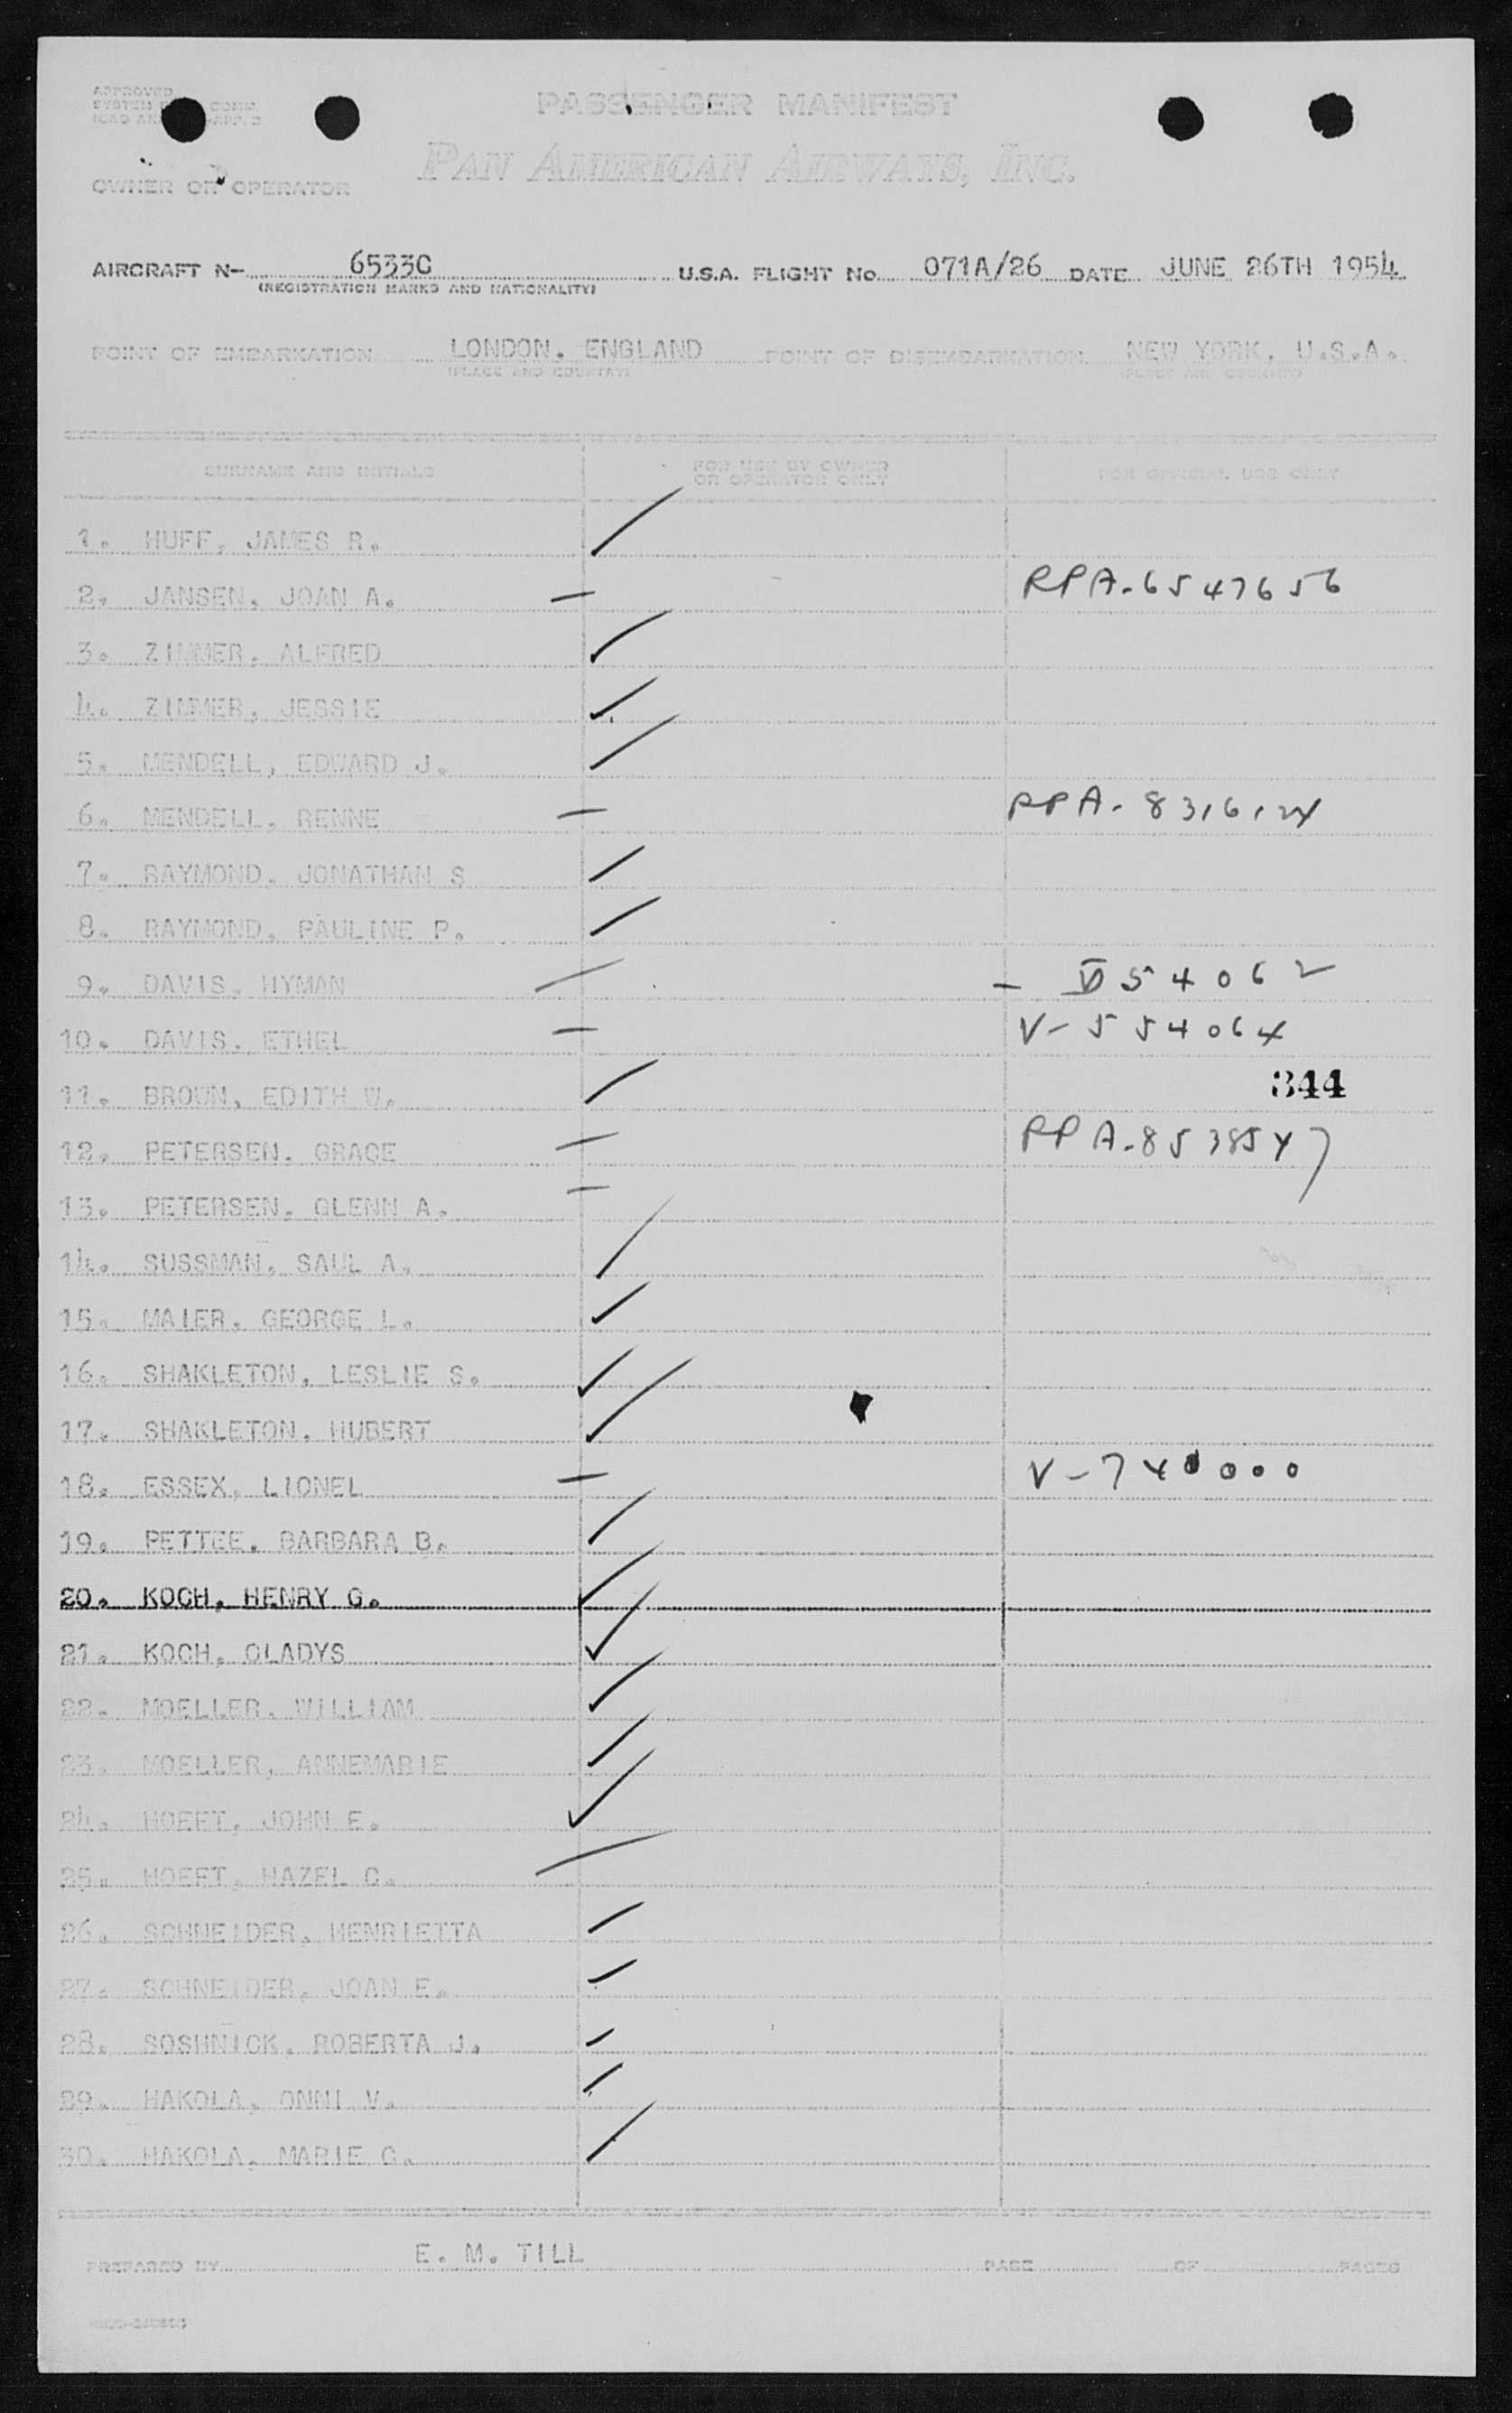 APPROVED
SYSTEM COMM.
ICAO APP. 2
PASSENGER MANIFEST
PAN AMERICAN AIRWAYS, INC.
OWNER OR OPERATOR
AIRCRAFT N- 6533C U.S.A. FLIGHT No. 071A/26 DATE JUNE 26TH 1954
(REGISTRATION MARKS AND NATIONALITY)
POINT OF EMBARKATION LONDON, ENGLAND POINT OF DISEMBARKATION NEW YORK, U.S.A.
(PLACE AND COUNTRY) (PLACE AND COUNTRY)
SURNAME AND INITIALS FOR USE BY OWNER OR OPERATOR ONLY FOR OFFICIAL USE ONLY
1. HUFF, JAMES R.
2. JANSEN, JOAN A. RPA-6547656
3. ZIMMER, ALFRED
4. ZIMMER, JESSIE
5. MENDELL, EDWARD J.
6. MENDELL, RENNE RPA-8316124
7. RAYMOND, JONATHAN S
8. RAYMOND, PAULINE P.
9. DAVIS, HYMAN
10. DAVIS, ETHEL V-554064
11. BROWN, EDITH W. 344
12. PETERSEN, GRACE
13. PETERSEN, GLENN A.
14. SUSSMAN, SAUL A.
15. MAIER, GEORGE L.
16. SHAKLETON, LESLIE S.
17. SHAKLETON, HUBERT
18. ESSEX, LIONEL V-740000
19. PETTEE, BARBARA B.
20. KOCH, HENRY G.
21. KOCH, GLADYS
22. MOELLER, WILLIAM
23. MOELLER, ANNEMARIE
24. HOEFT, JOHN E.
25. HOEFT, HAZEL C.
26. SCHNEIDER, HENRIETTA
27. SCHNEIDER, JOAN E.
28. SOSHNICK, ROBERTA J.
29. HAKOLA, ONNI V.
30. HAKOLA, MARIE C.
PREPARED BY E. M. TILL PAGE OF PAGES